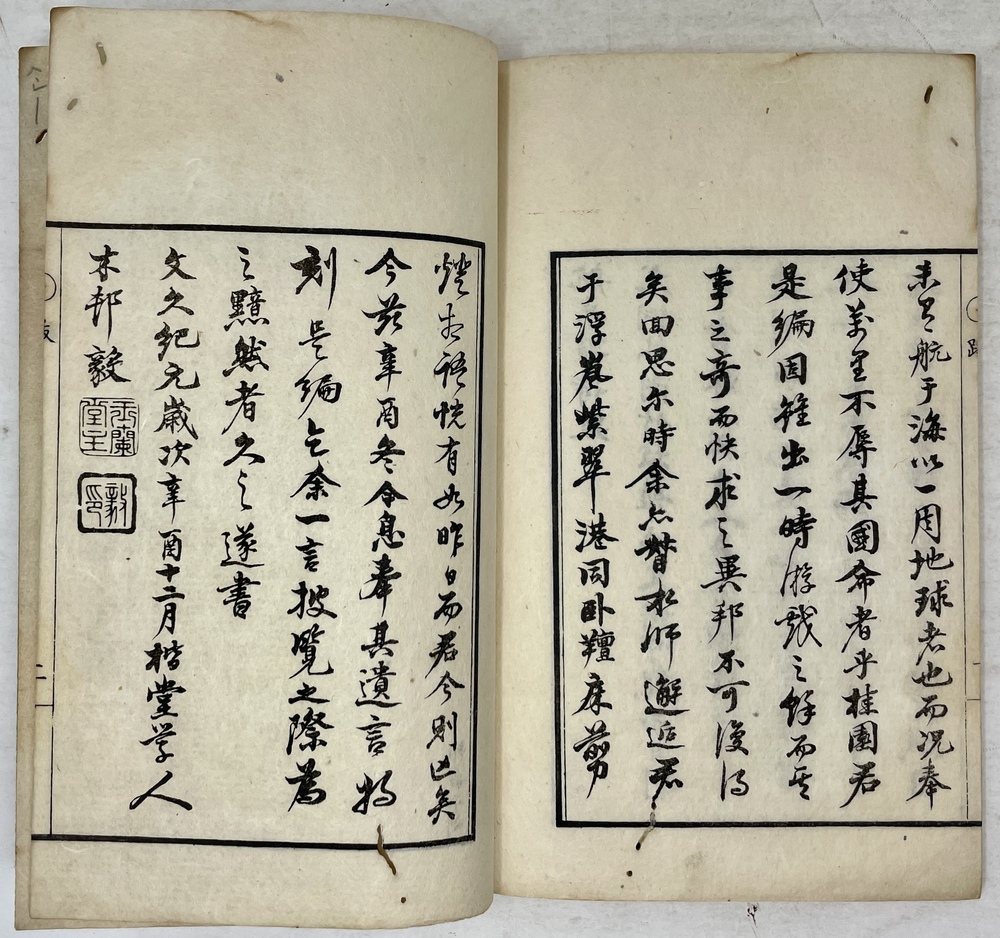 跋
一
未有航于海以一周地球者也而况奉
使萬里不辱其國命者乎桂園君
是編固雖出一時游戯之餘而其
事之奇而快求之異邦不可復得
矣回思尔時余亦督水師邂逅君
于浮嵐紫翠港同卧羶床剪
燈語恍有如昨日而君今則亡矣
今玆辛酉冬令息奉其遺言将
刻是編乞余一言披覽之際為
之黯然者久之遂書
文久紀元歳次辛酉十二月楷堂学人
木邨毅
蘭堂主
毅印
跋
二